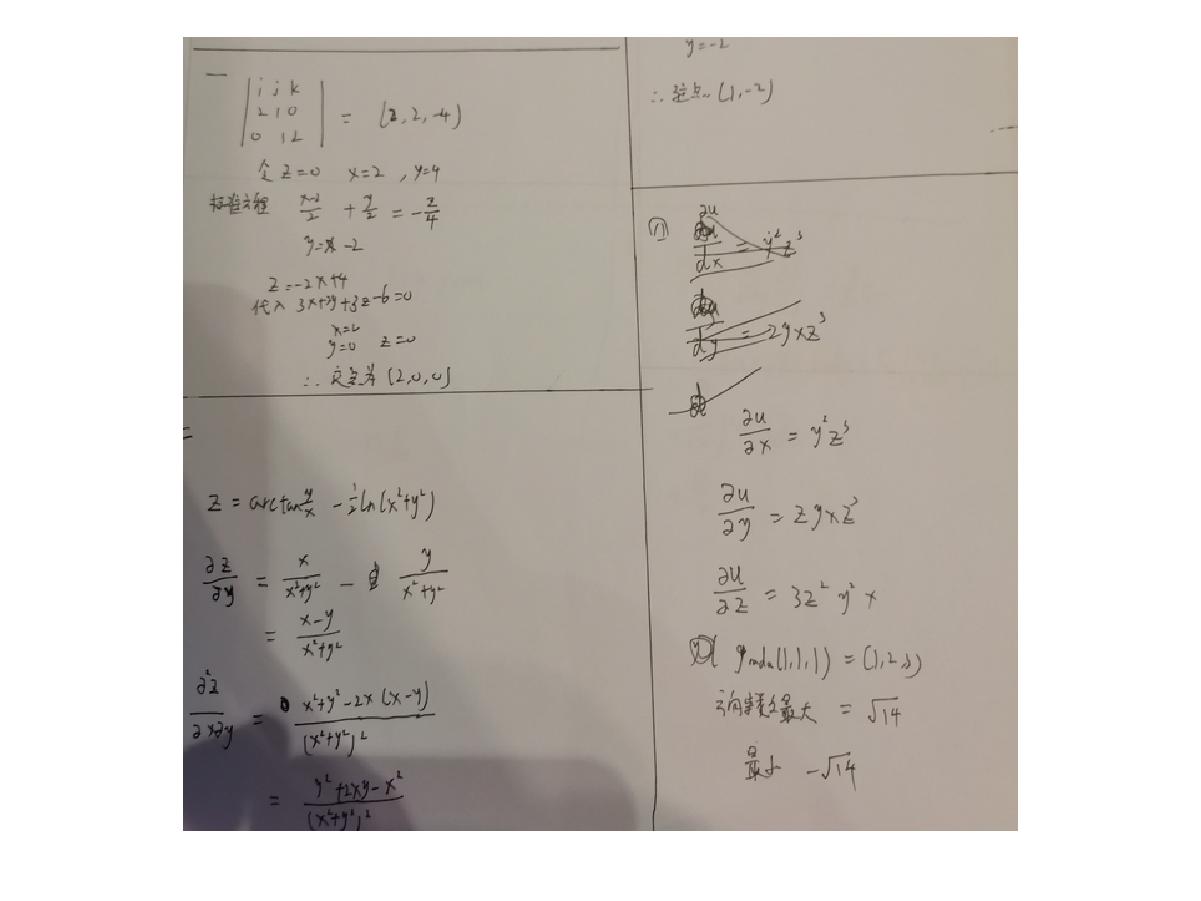 一
| i j k |
| 2 1 0 | = (2, 2, -4)
| 0 1 2 |
令 z=0 x=2 , y=4
标准方程 (x-2)/2 + y/2 = -z/4
y=x-2
z=-2x+4
代入 3x+3y+3z-6=0
x=2
y=0 z=0
∴ 交点为 (2,0,0)
二
z = arctan y/x - 1/2 ln(x²+y²)
∂z/∂y = x/(x²+y²) - y/(x²+y²)
= (x-y)/(x²+y²)
∂²z/∂x∂y = (x²+y²-2x(x-y))/(x²+y²)²
= (y²+2xy-x²)/(x²+y²)²
y=-2
∴ 驻点 (1,-2)
(1) ∂u/dx = y²z³
/dy = 2yxz³
∂u/∂x = y²z³
∂u/∂y = 2yxz³
∂u/∂z = 3z²y²x
(2) gradu(1,1,1) = (1,2,3)
方向导数最大 = √14
最小 -√14